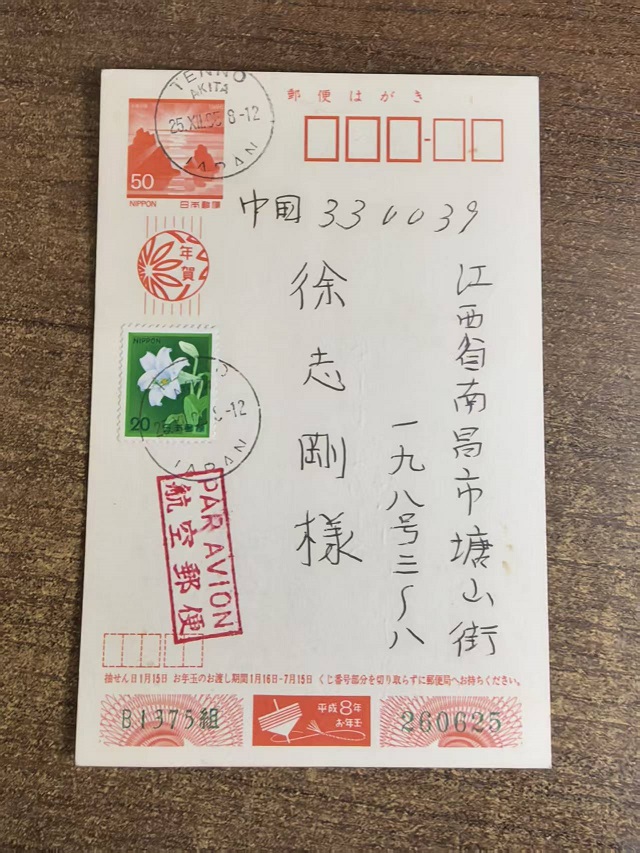 郵便はがき
TENNO
AKITA
25.XII.95 8-12
JAPAN
50
NIPPON 日本郵便
年賀
中国 330039
江西省南昌市塘山街
一九八号三〜八
徐志剛様
NIPPON
20 日本郵便
JAPAN
PAR AVION
航空郵便
抽せん日1月15日 お年玉のお渡し期間1月16日-7月15日 くじ番号部分を切り取らずに郵便局へお持ちください。
B1375組
平成8年
お年玉
260625